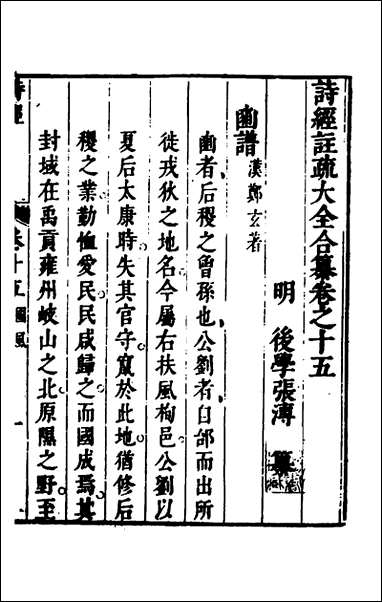 詩經註疏大全合纂卷之十五
明 後學張溥 纂
豳譜 漢鄭玄著
豳者后稷之曾孫也公劉者自邰而出所
徙戎狄之地名今屬右扶風栒邑公劉以
夏后太康時失其官守竄於此地猶修后
稷之業勤恤愛民民咸歸之而國成焉其
封域在禹貢雍州岐山之北原隰之野至
詩經 卷十五 國風 一